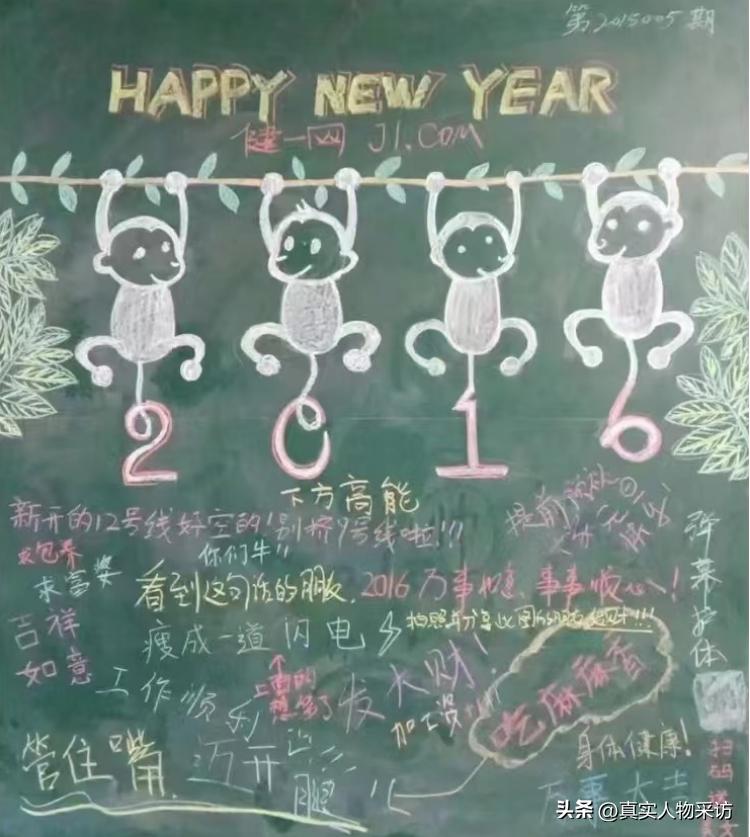 第2015005期
HAPPY NEW YEAR
健一网 J1.COM
2016
下方高能
新开的12号线好空的!别挤9号线啦!!!
求包养
求富婆
你们牛!!
看到这句话的朋友,2016万事如意、事事顺心!
吉祥
如意
瘦成一道闪电
工作顺利
上面的
想多了
发大财!
加工资!!!
吃麻麻香
弹幕护体
身体健康!
管住嘴
迈开
腿
万事大吉
扫
码
头条 @真实人物采访